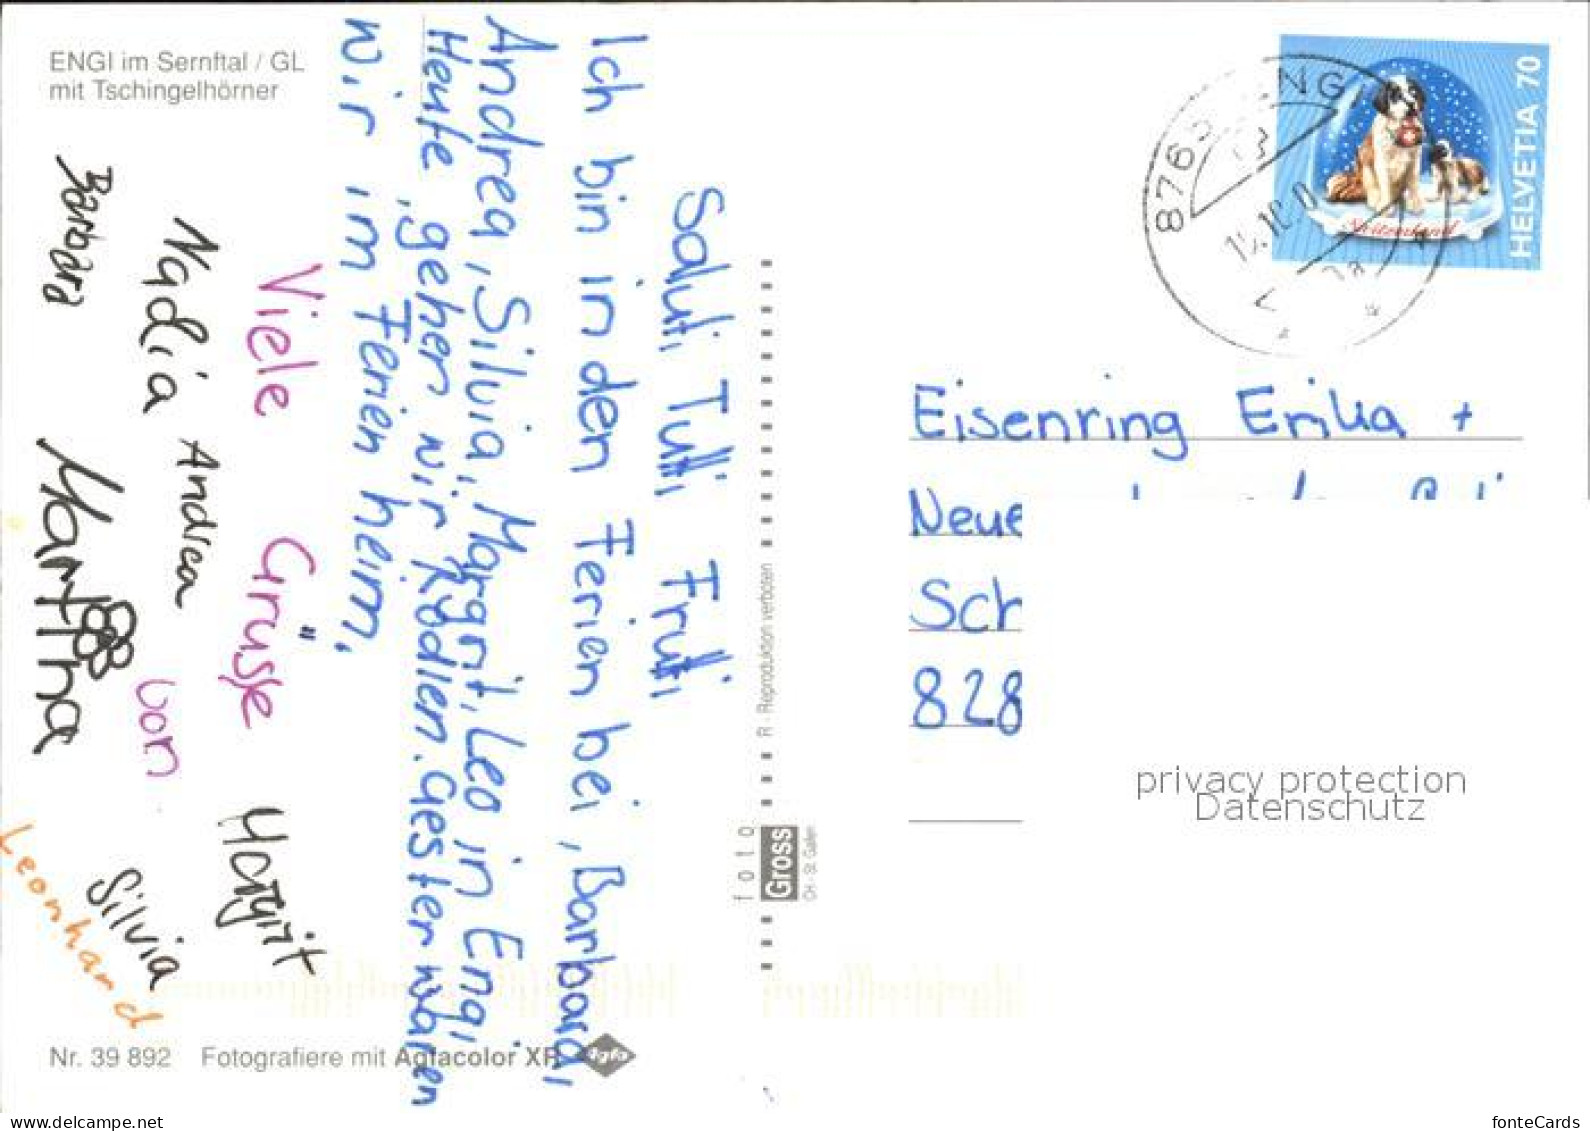 ENGI im Sernftal / GL
mit Tschingelhörner
Saluti Tutti Frutti
Ich bin in den Ferien bei, Barbara,
Andrea, Silvia, Margrit, Leo in Engi
Heute, gehen wir Rodlen. Gestern waren
wir im Ferien heim.
Viele Grüsse
von
Barbara
Nadia
Andrea
Martha
Margrit
Silvia
Leonhard
R - Reproduktion verboten
foto
Gross
CH - St. Gallen
Nr. 39 892 Fotografiere mit Agfacolor XR
Agfa
HELVETIA 70
Switzerland
Eisenring Erika +
Neue
Sch
828
privacy protection
Datenschutz
www.delcampe.net
fonteCards